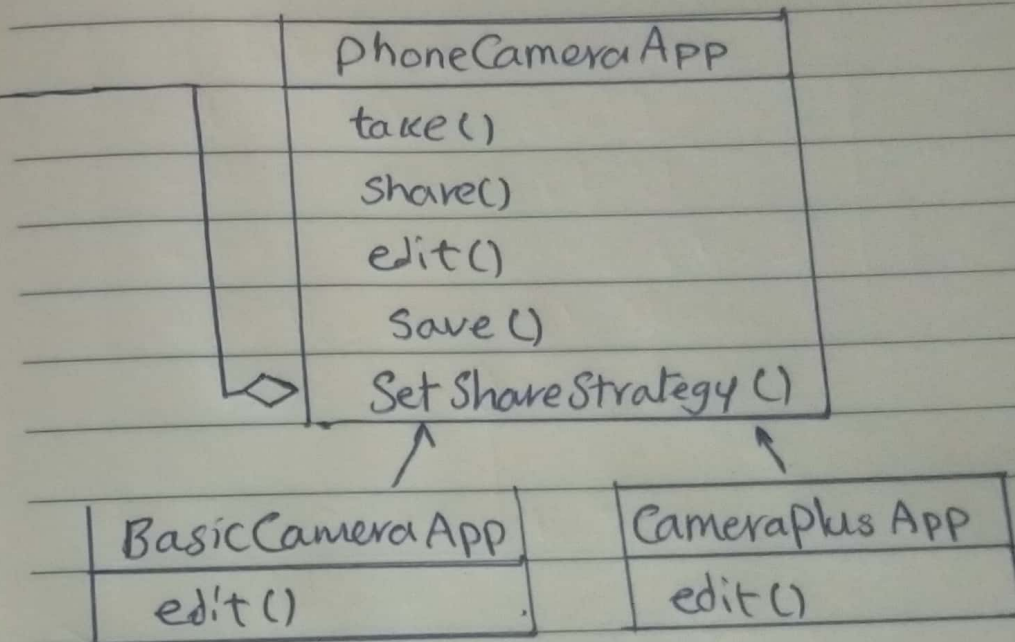 PhoneCameraApp
take()
Share()
edit()
Save()
Set ShareStrategy()
BasicCameraApp
edit()
CameraPlus App
edit()